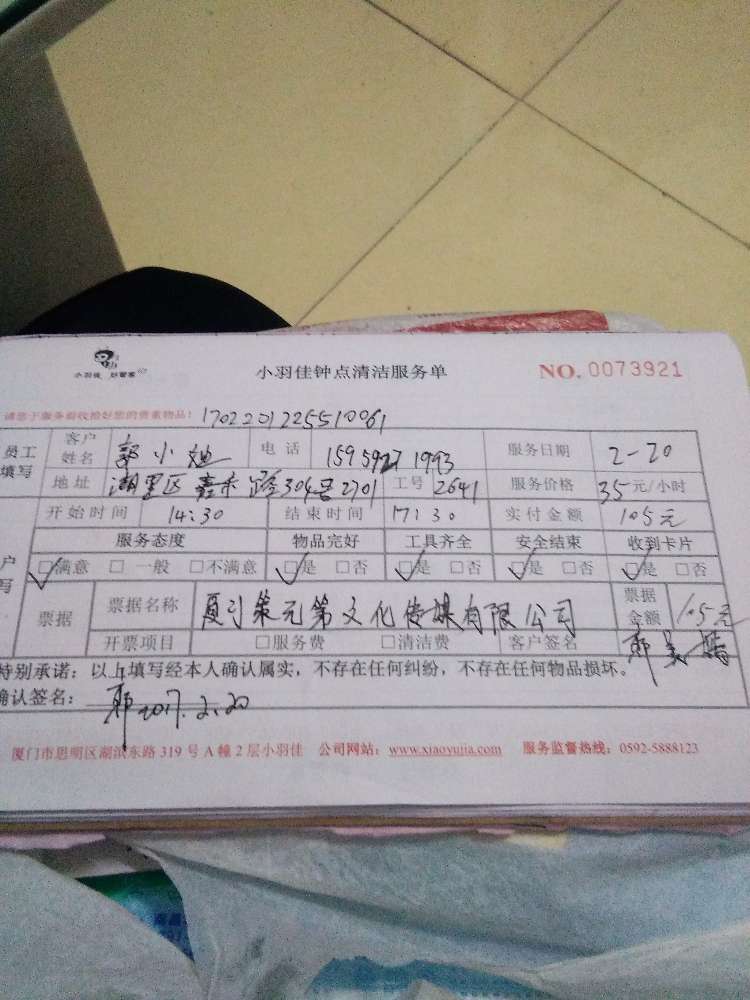 小羽佳 好管家
小羽佳钟点清洁服务单
NO. 0073921
请您于服务前收拾好您的贵重物品! 1702201225510061
员工填写 客户姓名 郭小 电话 15959271993 服务日期 2-20
地址 湖里区 路304号2701 工号 2641 服务价格 35元/小时
开始时间 14:30 结束时间 17:30 实付金额 105元
户写 服务态度 物品完好 工具齐全 安全结束 收到卡片
☑满意 □ 一般 □不满意 ☑是 □否 ☑是 □否 ☑是 □否 ☑是 □否
票据 票据名称 厦门策元第文化传媒有限公司 票据金额 105元
开票项目 □服务费 □清洁费 客户签名 郭美
特别承诺:以上填写经本人确认属实,不存在任何纠纷,不存在任何物品损坏。
确认签名: 郭 2017.2.20
厦门市思明区湖滨东路 319 号 A 幢 2 层小羽佳 公司网站:www.xiaoyujia.com 服务监督热线:0592-5888123